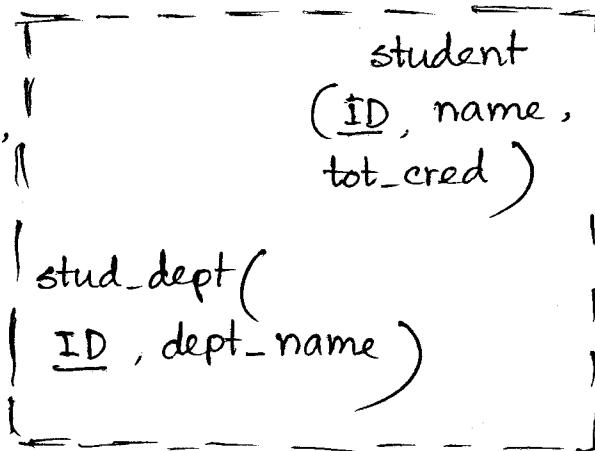 student
(ID, name,
tot_cred)
stud_dept(
ID, dept_name)